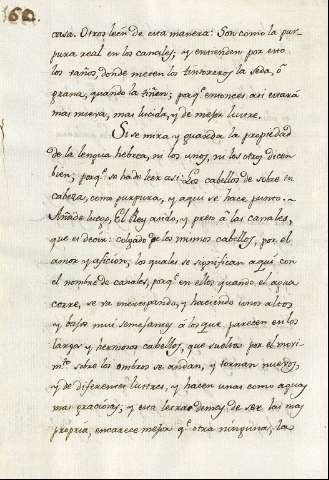 160.
cosa. Otros leen de esta manera: Son como la pur
pura real en los canales; y entienden por esto
los vaños, donde meten los tintoreros la seda, ó
grana, quando la tiñen; porq.e entonces asi estará
mas nueva, mas lucida, y de mejor lustre.
Si se mira y guarda la propiedad
de la lengua hebrea, ni los unos, ni los otros dicen
bien; porq.e se ha de leer asi: Los cabellos de sobre tu
cabeza, como purpura, y aqui se hace punto.
Añade luego, El Rey asido, y preso á las canales,
que es decir: colgado de los mismos cabellos, por el
amor y aficion; los quales se significan aqui con
el nombre de canales, porq.e en ellos quando el agua
corre, se ve encrespando, y haciendo unos altos
y bajos mui semejantes á los que parecen en los
largos y hermosos cabellos, que sueltos por el movi-
m.to sobre los ombros se andan, y tornan nuevos,
y de diferentes lustres, y hacen unas como aguas
mas graciosas; y esta letra demas de ser la mas
propria, encarece mejor q.e otra ninguna, la